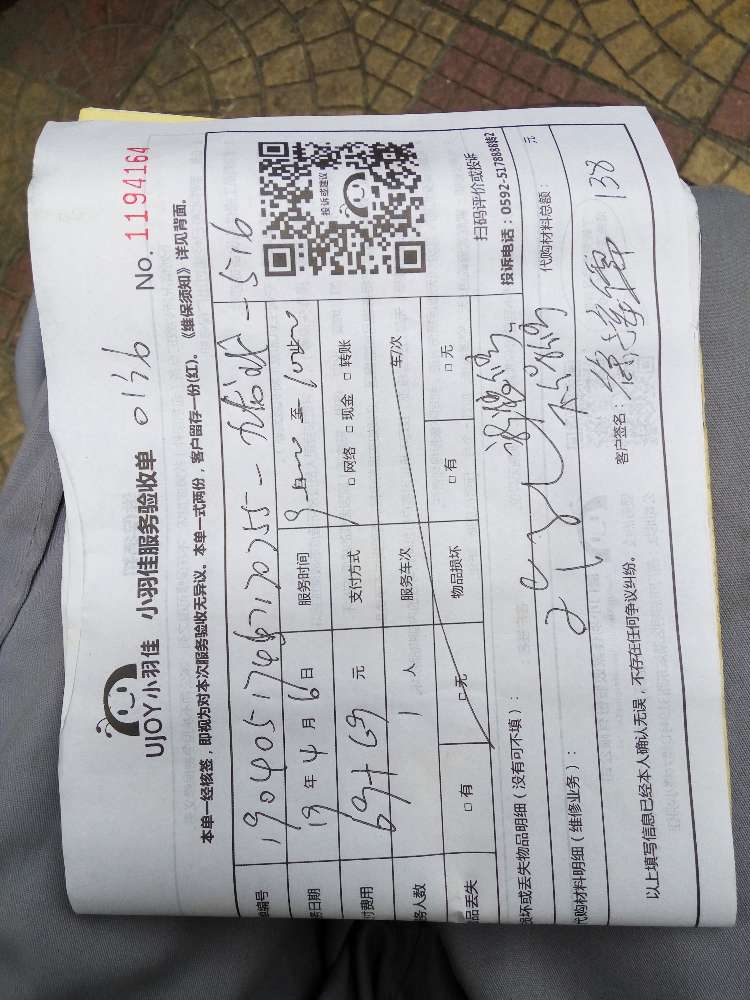 UJOY小羽佳 小羽佳服务验收单 0136 No. 1194164
本单一经核签，即视为对本次服务验收无异议。本单一式两份，客户留存一份(红)。《维保须知》详见背面。
编号
务日期 19 年 4 月 6 日 服务时间 至
付费用 元 支付方式 □ 网络 □ 现金 □ 转账
务人数 1 人 服务车次 车/次
品丢失 □ 有 □ 无 物品损坏 □ 有 □ 无
投诉或建议
扫码评价或投诉
投诉电话：0592-5178888转2
损坏或丢失物品明细（没有可不填）：
代购材料明细（维修业务）： 代购材料总额： 元
以上填写信息已经本人确认无误，不存在任何争议纠纷。 客户签名： 138